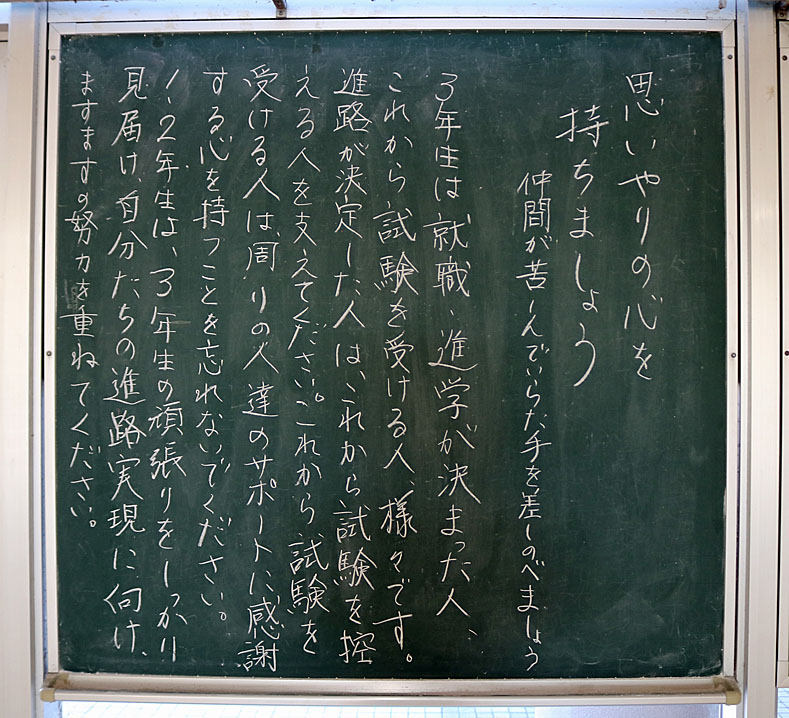 思いやりの心を
持ちましょう
仲間が苦しんでいらだ手を差しのべましょう
3年生は就職、進学が決まった人、
これから試験を受ける人、様々です。
進路が決定した人は、これから試験を控
える人を支えてください。これから試験を
受ける人は、周りの人達のサポートに感謝
する心を持つことを忘れないでください。
1、2年生は、3年生の頑張りをしっかり
見届け、自分たちの進路実現に向け、
ますますの努力を重ねてください。